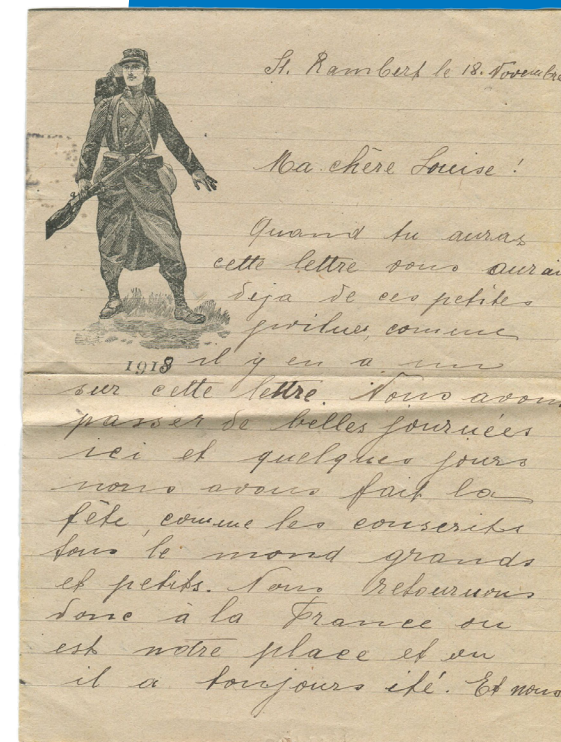 St. Rambert le 18. Novembre
Ma chère Louise!
Quand tu auras
cette lettre vous aurai
deja de ces petites
poilues, comme
1918 il y en a un
sur cette lettre. Nous avons
passer de belles journées
ici et quelques jours
nous avons fait la
fête, comme les conscrits
tous le mond grands
et petits. Nous retournons
donc à la France ou
est notre place et ou
il a toujours été. Et nous